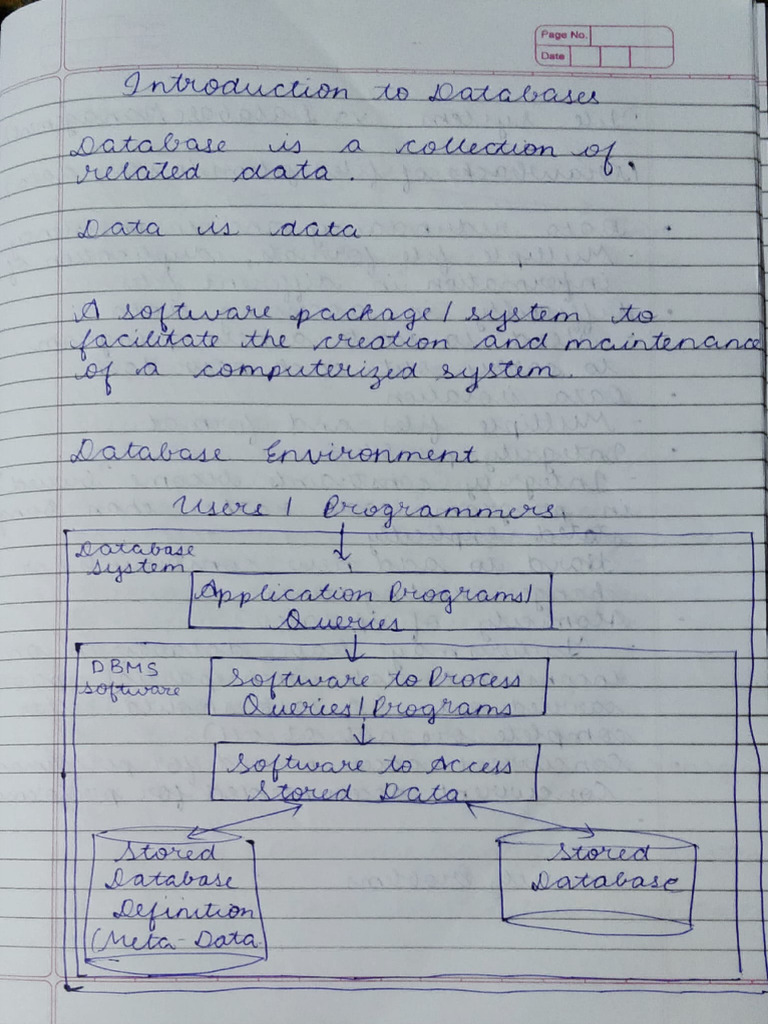 Page No.
Date
Introduction to Databases
Database is a collection of
related data.
Data is data
A software package / system to
facilitate the creation and maintenance
of a computerized system.
Database Environment
Users / Programmers
Database
System
Application Programs/
Queries
DBMS
Software
Software to Process
Queries / Programs
Software to Access
Stored Data
Stored
Database
Definition
(Meta-Data
Stored
Database